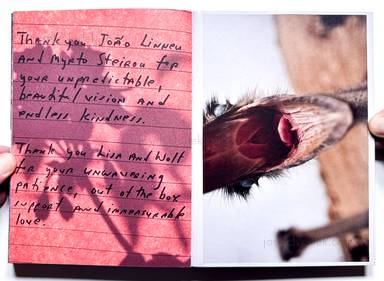 Thank you João Linneu
and Myrto Steirou for
your unpredictable,
beautiful vision and
endless kindness.
Thank you Lisa and Wolf
for your unwavering
patience, out of the box
support and immeasurable
love.